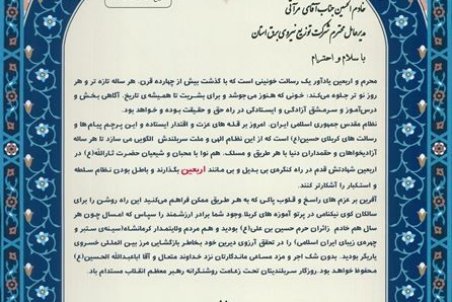 خادم الحسین جناب آقای مرآتی
مدیرعامل محترم شرکت توزیع نیروی برق استان
با سلام و احترام
محرم و اربعین یادآور یک رسالت خونینی است که با گذشت بیش از چهارده قرن، هر ساله تازه تر و هر
روز نو تر جلوه می‌کند: خونی که هنوز می‌جوشد و برای بشریت تا همیشه‌ی تاریخ، آگاهی بخش و
درس‌آموز و سرمشق آزادگی و ایستادگی در راه حق و حقیقت بوده و خواهد بود.
نظام مقدس جمهوری اسلامی ایران، امروز بر قله های عزت و اقتدار ایستاده و این پرچم پیام‌ها و
رسالت های کربلای حسین(ع) است که از این نظام الهی و ملت سربلندش الگویی می سازد تا هر ساله
آزادیخواهان و حقمداران دنیا با هر طریق و مسلک، هم نوا با محبان و شیعیان حضرت ثارالله(ع) در
اربعین شهادتش قدم در راه کنگره‌ی بی بدیل و بی مانند اربعین بگذارند و باطل بودن نظام سلطه
و استکبار را آشکارتر کنند.
آفرین بر عزم های راسخ و قلوب پاکی که به هر طریق ممکن فراهم می‌کنید این راه روشن را برای
سالکان کوی نیکنامی در پرتو آموزه های کربلا وجود شما برادر ارزشمند را سپاس که امسال چون هر
سال هم خادم زائران حرم حسین بن علی(ع) بودید و هم مردم ولایتمدار کرمانشاه(سینه‌ی ستبر و
چهره‌ی زیبای ایران اسلامی) را در تحقق آرزوی دیرین خود بخاطر بازگشایی مرز بین المللی خسروی
یاریگر بودید. بدون شک اجر و مزد مساعی ماندگارتان نزد خداوند متعال و آقا اباعبدالله الحسین(ع)
محفوظ خواهد بود. روزگار سربلندیتان تحت زعامت روشنگرانه رهبر معظم انقلاب مستدام باد.